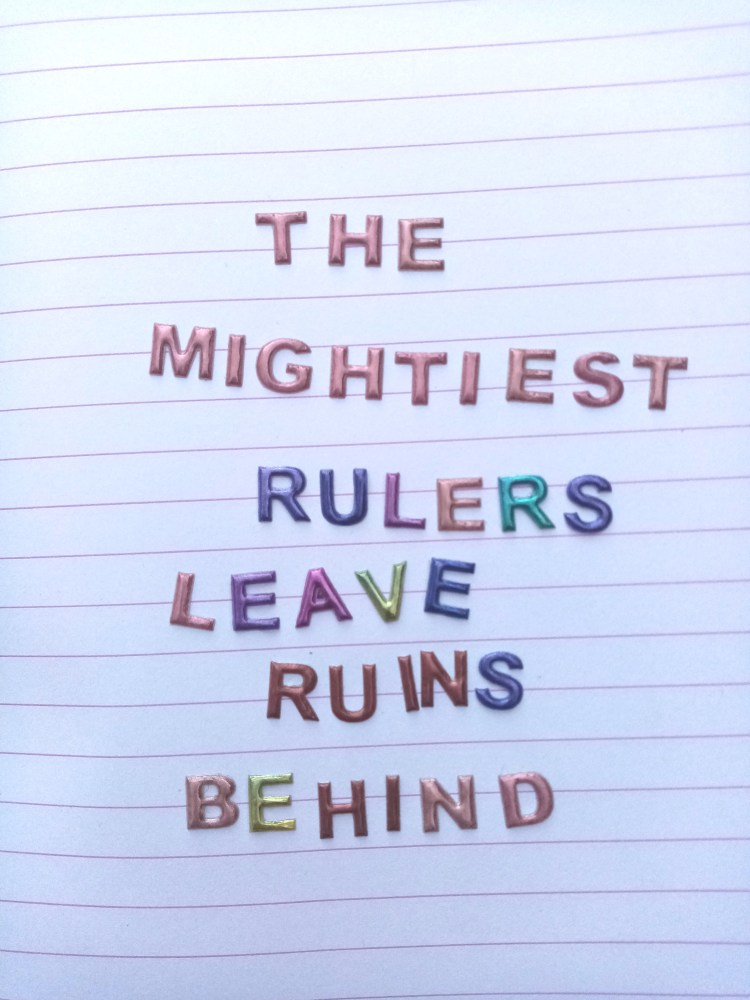 THE
MIGHTIEST
RULERS
LEAVE
RUINS
BEHIND